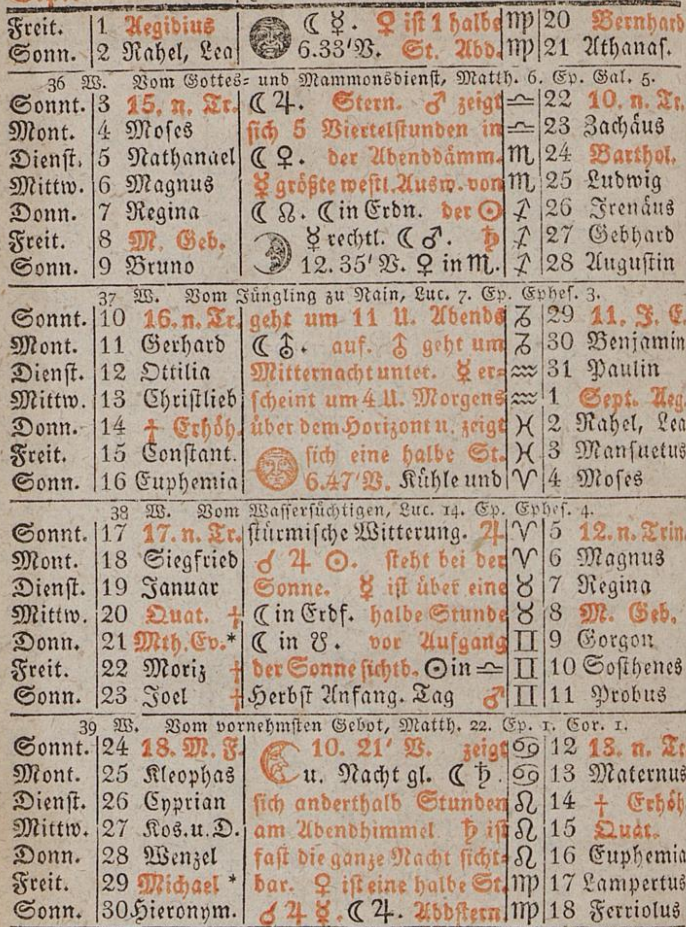 Freit. 1 Aegidius ☾ ☿. ♀ ist 1 halbe ♍ 20 Bernhard
Sonn. 2 Rahel, Lea 6.33'V. St. Abd. ♍ 21 Athanas.
36 W. Vom Gottes- und Mammonsdienst, Matth. 6. Ep. Gal. 5.
Sonnt. 3 15. n. Tr. ☾ ♃. Stern. ♂ zeigt ♎ 22 10. n. Tr.
Mont. 4 Moses sich 5 Viertelstunden in ♎ 23 Zachäus
Dienst. 5 Nathanael ☾ ♀. der Abenddämm- ♏ 24 Barthol.
Mittw. 6 Magnus ☿ größte westl. Ausw. von ♏ 25 Ludwig
Donn. 7 Regina ☾ ☊. ☾ in Erdn. der ☉ ♐ 26 Irenäus
Freit. 8 M. Geb. ☿ rechtl. ☾ ♂. ♄ ♐ 27 Gebhard
Sonn. 9 Bruno 12. 35' V. ♀ in ♏. ♐ 28 Augustin
37 W. Vom Jüngling zu Nain, Luc. 7. Ep. Ephes. 3.
Sonnt. 10 16. n. Tr. geht um 11 U. Abends ♑ 29 11. J. E.
Mont. 11 Gerhard ☾ ⛢. auf. ⛢ geht um ♑ 30 Benjamin
Dienst. 12 Ottilia Mitternacht unter. ☿ er- ♒ 31 Paulin
Mittw. 13 Christlieb scheint um 4 U. Morgens ♒ 1 Sept. Aeg.
Donn. 14 † Erhöh. über dem Horizont u. zeigt ♓ 2 Rahel, Lea
Freit. 15 Constant. sich eine halbe St. ♓ 3 Mansuetus
Sonn. 16 Euphemia 6.47'V. Kühle und ♈ 4 Moses
38 W. Vom Wassersüchtigen, Luc. 14. Ep. Ephes. 4.
Sonnt. 17 17. n. Tr. stürmische Witterung. ♃ ♈ 5 12. n. Trin.
Mont. 18 Siegfried ☌ ♃ ☉. steht bei der ♈ 6 Magnus
Dienst. 19 Januar Sonne. ☿ ist über eine ♉ 7 Regina
Mittw. 20 Quat. † ☾ in Erdf. halbe Stunde ♉ 8 M. Geb.
Donn. 21 Mth. Ev.* ☾ in ☋. vor Aufgang ♊ 9 Gorgon
Freit. 22 Moriz † der Sonne sichtb. ☉ in ♎ ♊ 10 Sosthenes
Sonn. 23 Joel † Herbst Anfang. Tag ♂ ♊ 11 Probus
39 W. Vom vornehmsten Gebot, Matth. 22. Ep. 1. Cor. 1.
Sonnt. 24 18. M. F. 10. 21' V. zeigt ♋ 12 13. n. Tr
Mont. 25 Kleophas u. Nacht gl. ☾ ♄. ♋ 13 Maternus
Dienst. 26 Cyprian sich anderthalb Stunden ♌ 14 † Erhöh
Mittw. 27 Kos. u. D. am Abendhimmel ♄ ist ♌ 15 Quat.
Donn. 28 Wenzel fast die ganze Nacht sicht- ♌ 16 Euphemia
Freit. 29 Michael * bar. ♀ ist eine halbe St. ♍ 17 Lampertus
Sonn. 30 Hieronym. ☌ ♃ ☿. ☾ ♃. Abdstern ♍ 18 Ferriolus